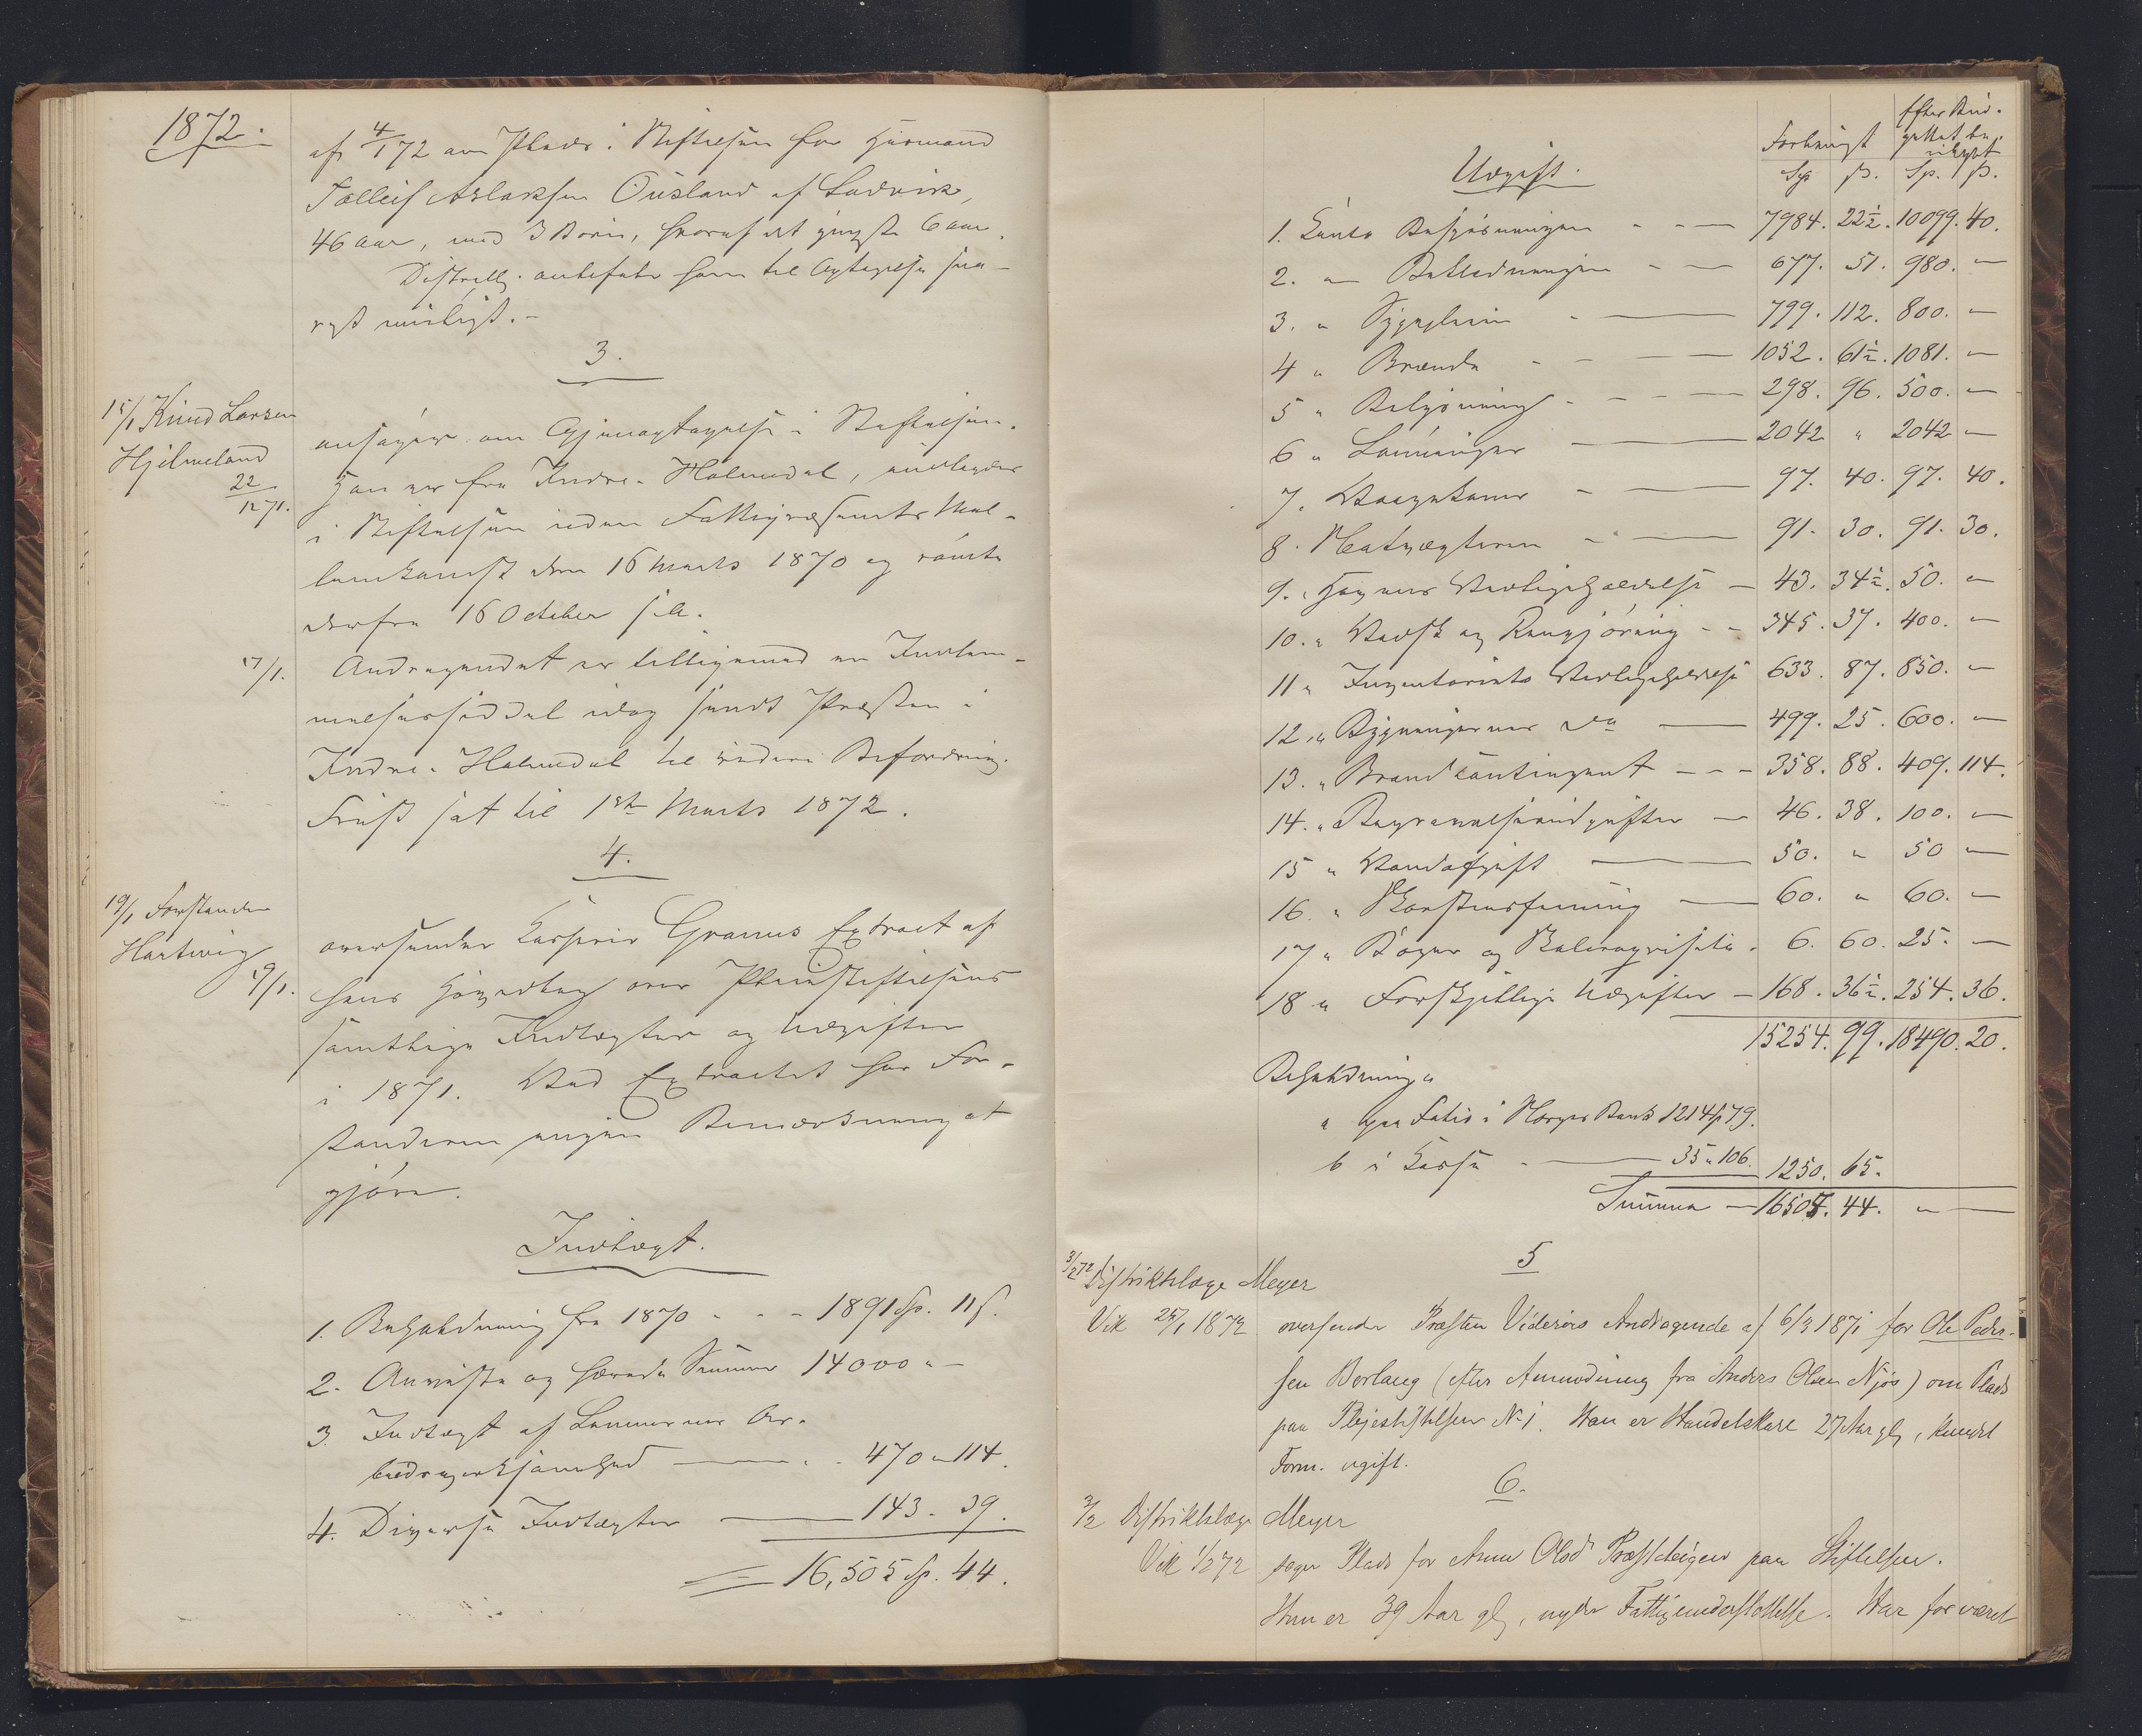 1872.
af 4/1 72 om Plads i Stiftelsen for Husmand
Tolleif Aslaksen Ousland af Ladvik,
46 Aar, med 3 Børn, hvoraf det yngste 6 Aar.
Distrl. anbefaler ham til Optagelse sna-
rest muligt.-
3.
15/1 Knud Larsen
Hjelmeland
22/12 71.
ansøger om Gjenoptagelse i Stiftelsen.
Han er fra Indre-Holmedal, indlagdes
i Stiftelsen uden Fattigvæsenets Mel-
lemkomst den 16 Marts 1870 og rømte
derfra 16 October s. A.
17/1.
Andragendet er tilligemed en Indlem-
melsesseddel idag sendt Præsten i
Indre-Holmedal til videre Befordring.
Frist sat til 1ste Marts 1872.
4.
19/1 Forstander
Hartwig
19/1.
oversender Kasserer Grams Extract af
hans Hovedbog over Pleiestiftelsens
samtlige Indtægter og Udgifter
i 1871. Ved Extractet har For-
standeren ingen Bemærkning at
gjøre.
Indtægt.
1. Beholdning fra 1870 - - - 1891 Sp. 11 ß.
2. Anviste og hævede Summer 14000 " -
3. Indtægt af Lemmernes Ar-
beidsvirksomhed - - 470 " 114.
4. Diverse Indtægter - 143 - 39.
= 16,505 Sp. 44.
Udgift.
Forbrugt
Efter Bud-
gettet be-
vilget
Sp ß. Sp. ß.
1. Conto Bespisningen - - - 7984. 22½. 10099. 40.
2. " Beklædningen - - 677. 51. 980. -
3. " Sygepleien - - 799. 112. 800. -
4 " Brænde - - - 1052. 61½. 1081. -
5 " Belysning - - - 298. 96. 500. -
6 " Lønninger - 2042 " 2042 -
7. Vaagekoner - - 97. 40. 97. 40.
8. Natvægteren - - 91. 30. 91. 30.
9. " Havens Vedligeholdelse - 43. 34½. 50. -
10. " Vadsk og Rengjøring - - 345. 37. 400. -
11 " Inventariets Vedligeholdelse 633. 87. 850. -
12. " Bygningernes do - 499. 25. 600. -
13. " Brandcontingent - - - 358. 88. 409. 114.
14. " Begravelsesudgifter - 46. 38. 100. -
15 " Vandafgift - 50. " 50 -
16. " Skorstensfeining - 60. " 60. -
17 " Bøger og Skriverequisita - 6. 60. 25. -
18 " Forskjellige Udgifter - 168. 36½. 254. 36.
15254. 99. 18490. 20.
Beholdning:
a paa Folio i Norges Bank 1214 Sp 79.
b i Kassen - 35 " 106. 1250. 65.
Summa - 16505. 44. " -
5
3/2 72 Distriktslæge Meyer
Vik 25/1 1872
oversender Præsten Viderøs Andragende af 6/3 1871 for Ole Peder-
sen Borlaug (efter Anmodning fra Anders Olsen Njøs) om Plads
paa Plejestiftelsen No 1. Han er Handelskarl 27 Aar gl, knudet
Form. ugift.
6.
3/2 Distriktslæge Meyer
Vik 1/2 72
søger Plads for Anna Olsdr Præsteteigen paa Stiftelsen.
Hun er 39 Aar gl, nyder Fattigunderstøttelse. Har før været